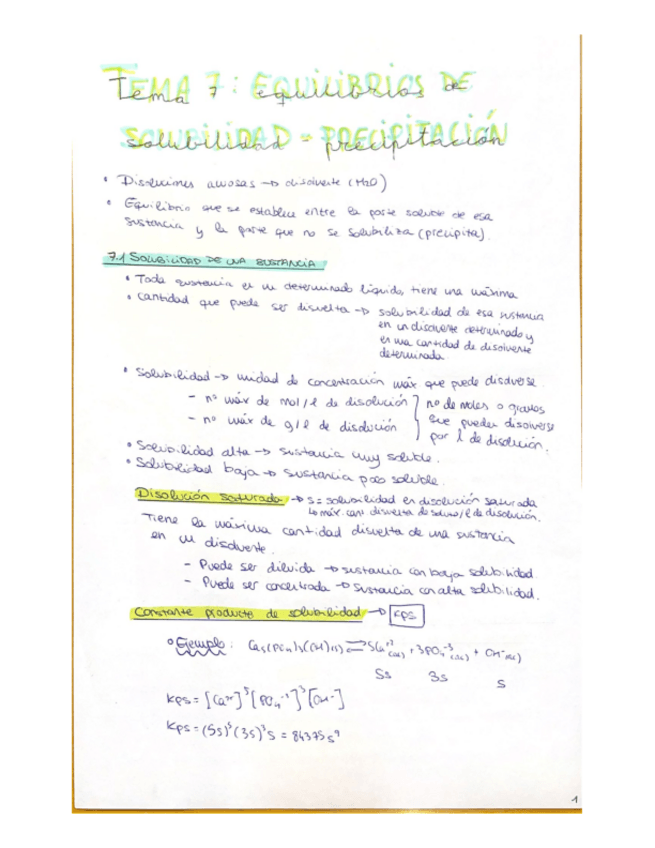 Tema 7: equilibrios de
solubilidad - precipitación
• Disoluciones acuosas → disolvente (H2O)
• Equilibrio que se establece entre la parte soluble de esa
sustancia y la parte que no se solubiliza (precipita).
7.1 SOLUBILIDAD DE UNA SUSTANCIA
• Toda sustancia en un determinado líquido, tiene una máxima
• cantidad que puede ser disuelta → solubilidad de esa sustancia
en un disolvente determinado y
en una cantidad de disolvente
determinada.
• Solubilidad → unidad de concentración máx que puede disolverse.
- nº máx de mol/l de disolución
- nº máx de g/l de disolución
nº de moles o gramos
que pueden disolverse
por l de disolución.
• Solubilidad alta → sustancia muy soluble.
• Solubilidad baja → sustancia poco soluble.
Disolución saturada → s = solubilidad en disolución saturada
↳ máx. cant disuelta de soluto/l de disolución.
Tiene la máxima cantidad disuelta de una sustancia
en un disolvente.
- Puede ser diluida → sustancia con baja solubilidad.
- Puede ser concentrada → sustancia con alta solubilidad.
Constante producto de solubilidad → Kps
• Ejemplo: Ca5(PO4)3(OH)(s) ⇌ 5Ca+2(ac) + 3PO4-3(ac) + OH-(ac)
5s 3s s
Kps = [Ca2+]5 [PO4-3]3 [OH-]
Kps = (5s)5 (3s)3 s = 84375 s9
1